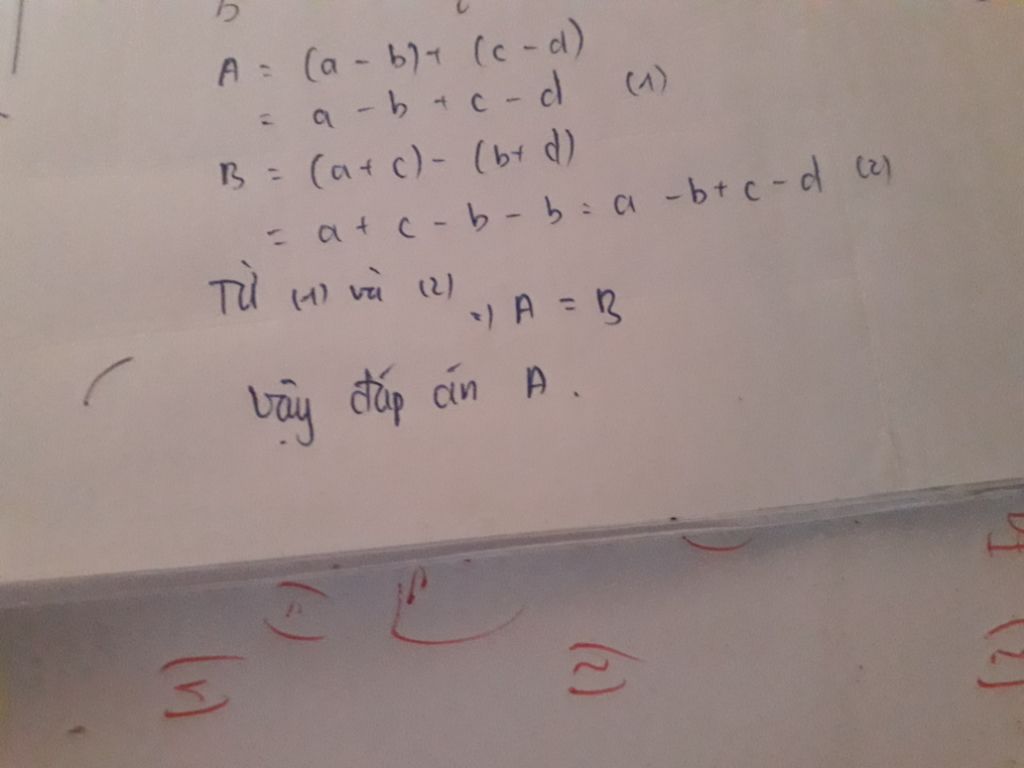 A = (a - b) + (c - d)
= a - b + c - d (1)
B = (a + c) - (b + d)
= a + c - b - b = a - b + c - d (2)
Từ (1) và (2) => A = B
Vậy đáp án A.